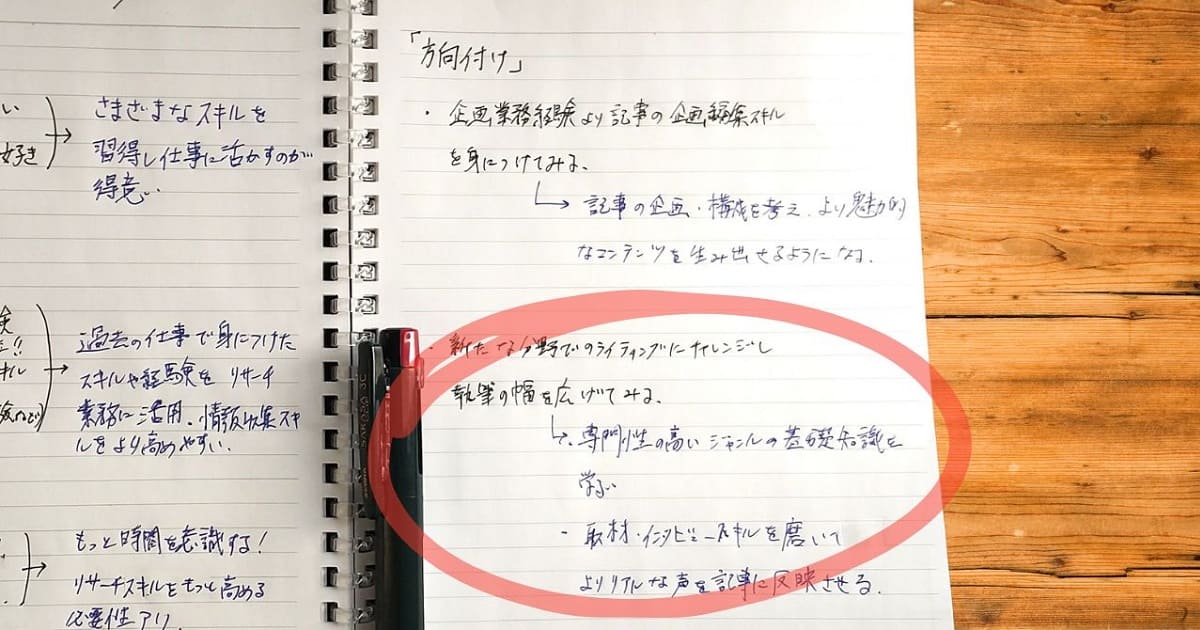 い
好き
さまざまなスキルを
習得し仕事に活かすのが
得意。
験
!!
キル
過去の仕事で身につけた
スキルや経験を リサーチ
業務に活用。情報収集スキ
ルをより高めやすい。
もっと時間を意識する!
リサーチスキルをもっと高める
必要性アリ。
「方向付け」
・企画業務経験より記事の企画編集スキル
を身につけてみる。
記事の企画・構成を考え、より魅力的
なコンテンツを生み出せるようになる。
・新たな分野でのライティングにチャレンジし
執筆の幅を広げてみる。
・専門性の高いジャンルの基礎知識を
学ぶ
・取材・インタビュースキルを磨いて
よりリアルな声を記事に反映させる。